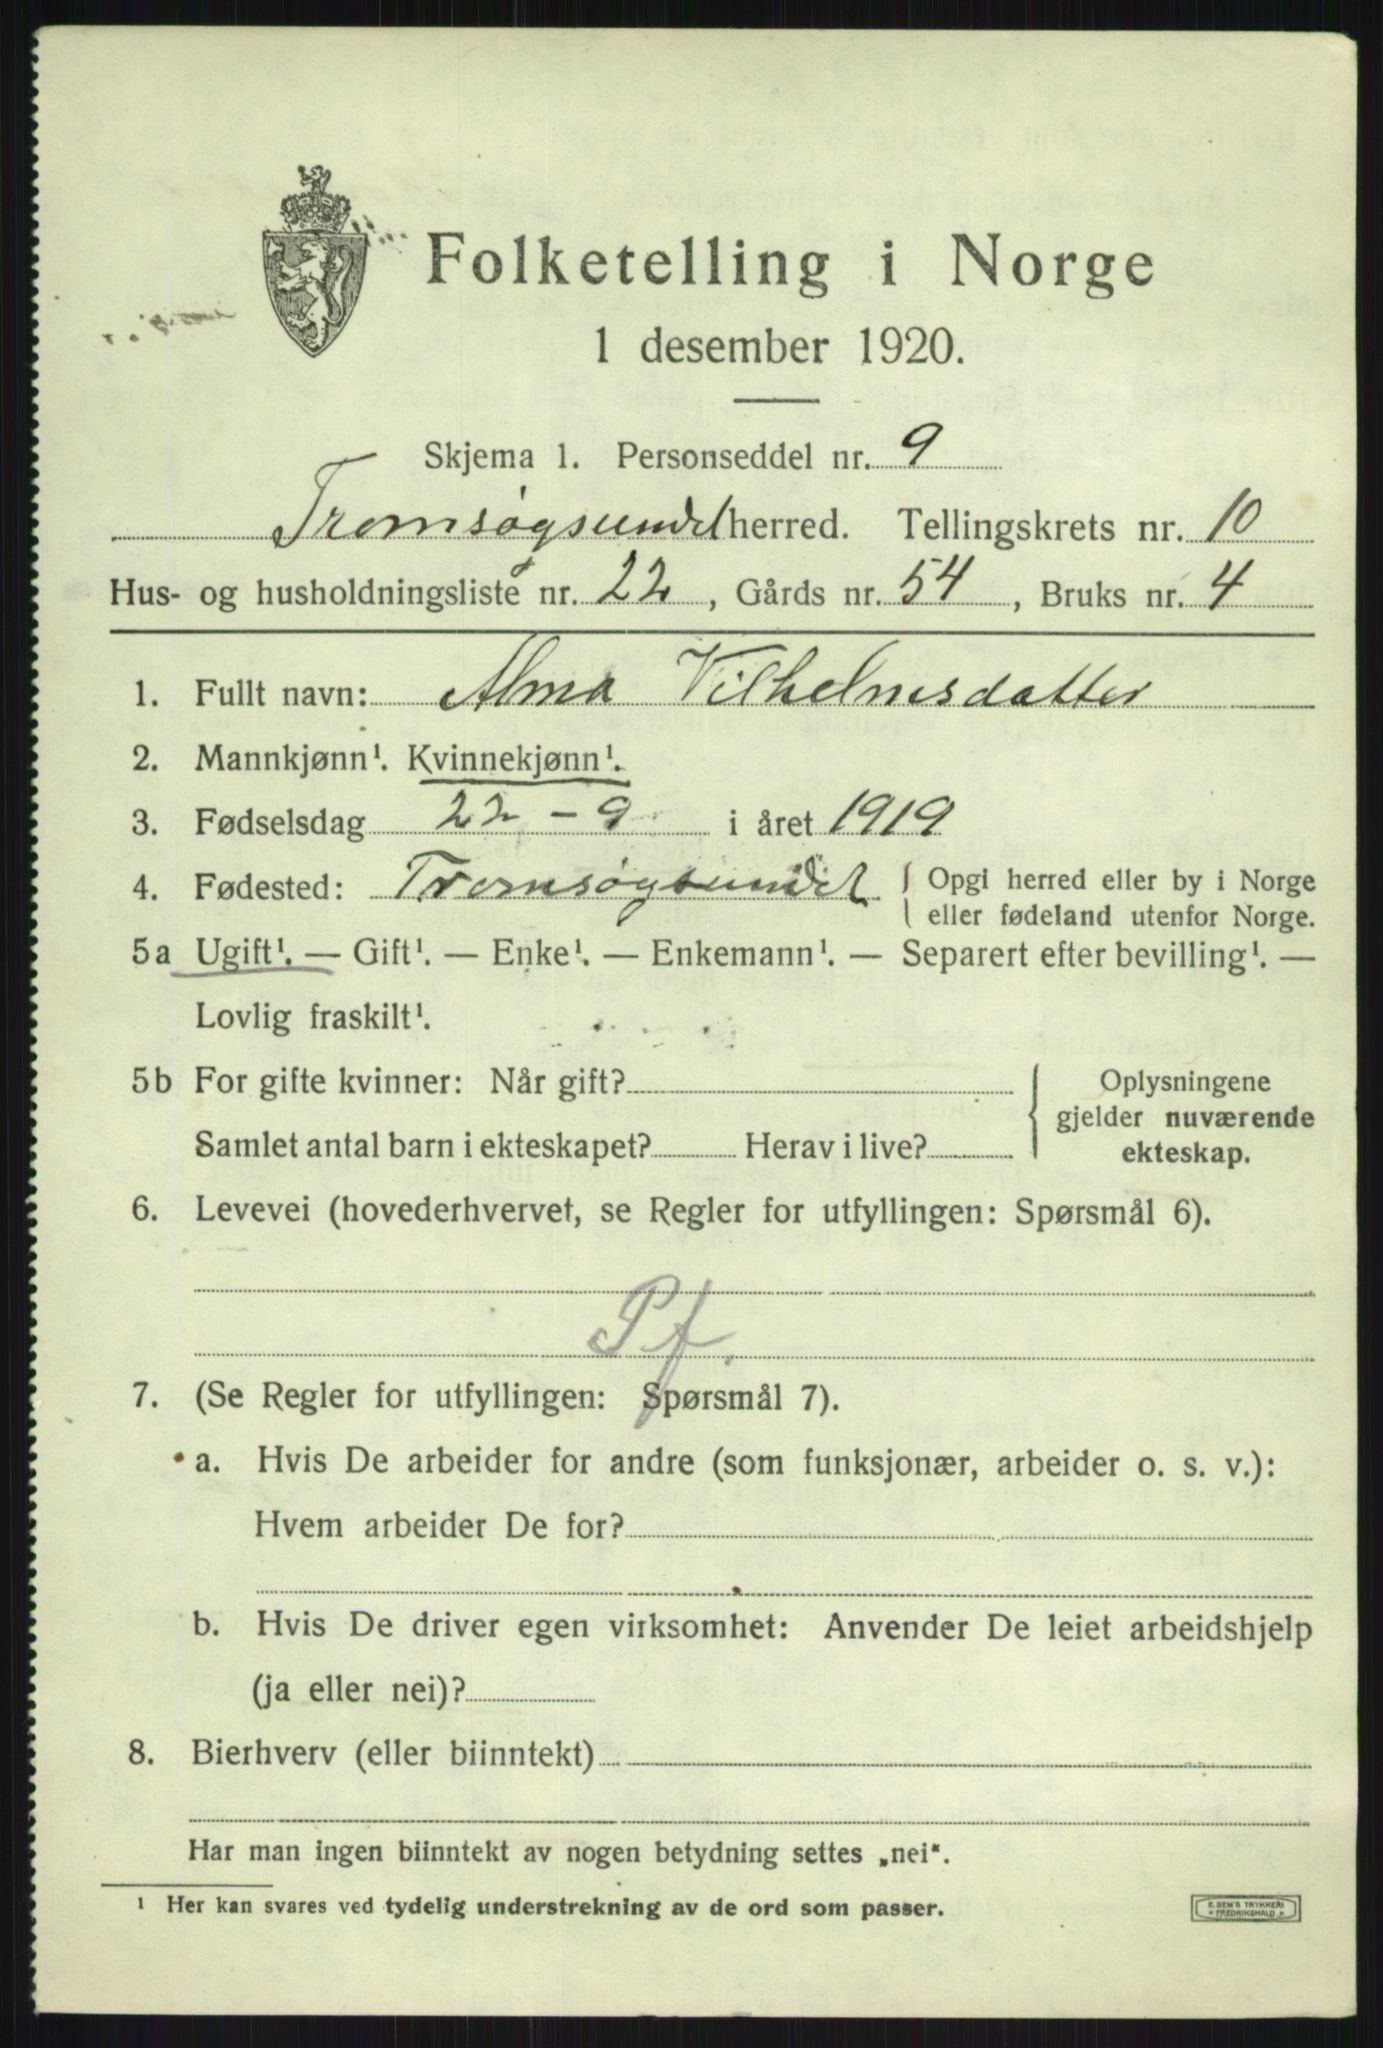 Folketelling i Norge
1 desember 1920.
Skjema 1. Personseddel nr. 9
Tromsøgsundet herred. Tellingskrets nr. 10
Hus- og husholdningsliste nr. 22, Gårds nr. 54, Bruks nr. 4
1. Fullt navn: Alma Vilhelmsdatter
2. Mannkjønn¹. Kvinnekjønn¹.
3. Fødselsdag 22 - 9 i året 1919
4. Fødested: Tromsøgsundet { Opgi herred eller by i Norge
eller fødeland utenfor Norge.
5a Ugift¹. — Gift¹. — Enke¹. — Enkemann¹. — Separert efter bevilling¹. —
Lovlig fraskilt¹.
5b For gifte kvinner: Når gift? { Oplysningene
gjelder nuværende
Samlet antal barn i ekteskapet? Herav i live? ekteskap.
6. Levevei (hovederhvervet, se Regler for utfyllingen: Spørsmål 6).
Pf.
7. (Se Regler for utfyllingen: Spørsmål 7).
a. Hvis De arbeider for andre (som funksjonær, arbeider o. s. v.):
Hvem arbeider De for?
b. Hvis De driver egen virksomhet: Anvender De leiet arbeidshjelp
(ja eller nei)?
8. Bierhverv (eller biinntekt)
Har man ingen biinntekt av nogen betydning settes „nei".
¹ Her kan svares ved tydelig understrekning av de ord som passer.
E. SEM'S TRYKKERI
FREDRIKSHALD